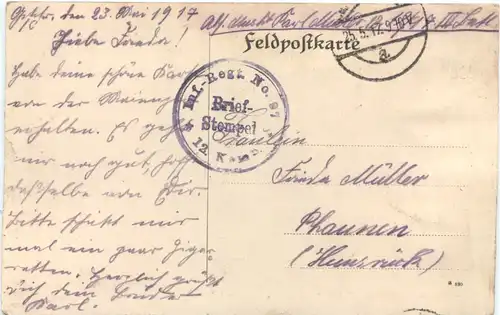 Gschr. den 23. Mai 1917
Liebe Frieda!
Habe deine schöne Karte
von der Maiung
erhalten. Es geht
mir noch gut, hoffe
dasselbe von Dir.
Bitte schikt mir
mal ein paar Zigar-
retten. Herzlich grüßt
dich dein Bruder
Karl.
Abs. Musk. Karl Müller
Feldpostkarte
25.5.17. 9-10 V
a
Inf.-Regt. No. 97
Brief-
Stempel
12. Komp.
Fräulein
Frieda Müller
Rhaunen
(Hunsrück)